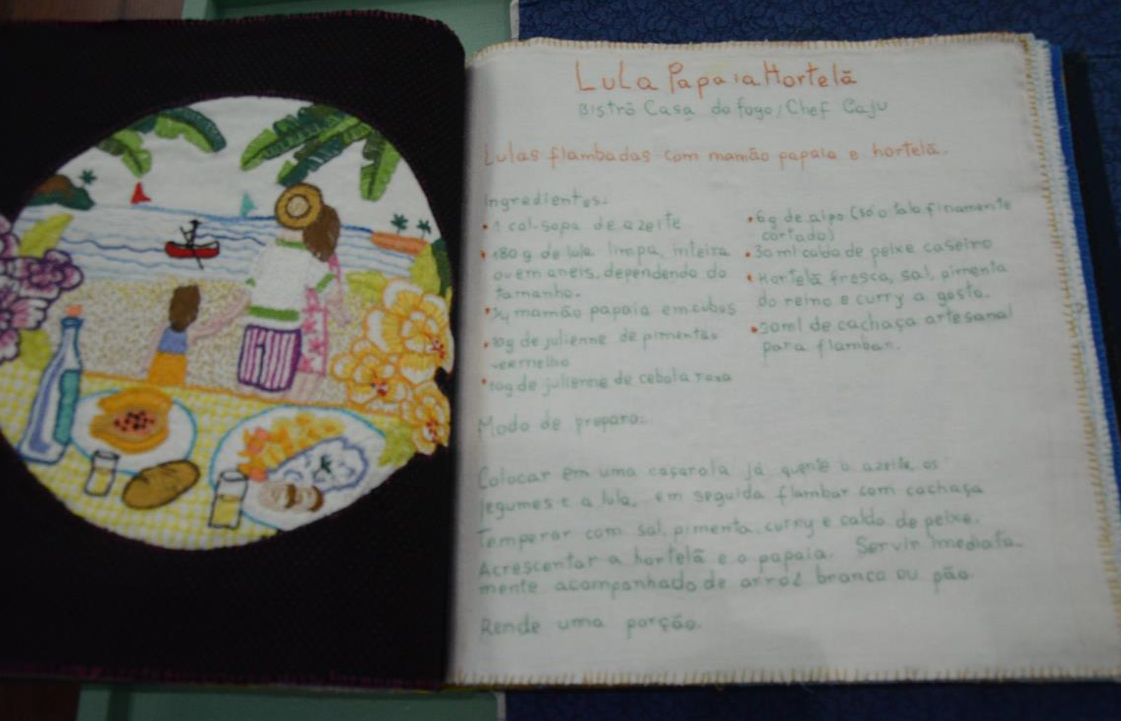 Lula Papaia Hortelã
Bistrô Casa do fogo/Chef Caju
Lulas flambadas com mamão papaia e hortelã.
Ingredientes:
• 1 col-sopa de azeite
• 180 g de lula limpa, inteira
ou em aneis, dependendo do
tamanho.
• 1/4 mamão papaia em cubos
• 10g de julienne de pimentão
vermelho
• 10g de julienne de cebola roxa
• 6g de aipo (só o talo finamente
cortado)
• 30 ml caldo de peixe caseiro
• Hortelã fresca, sal, pimenta
do reino e curry a gosto.
• 50ml de cachaça artesanal
para flambar.
Modo de preparo:
Colocar em uma caçarola já quente o azeite, os
legumes e a lula, em seguida flambar com cachaça
Temperar com sal, pimenta, curry e caldo de peixe.
Acrescentar a hortelã e o papaia. Servir imediata-
mente acompanhado de arroz branco ou pão.
Rende uma porção.